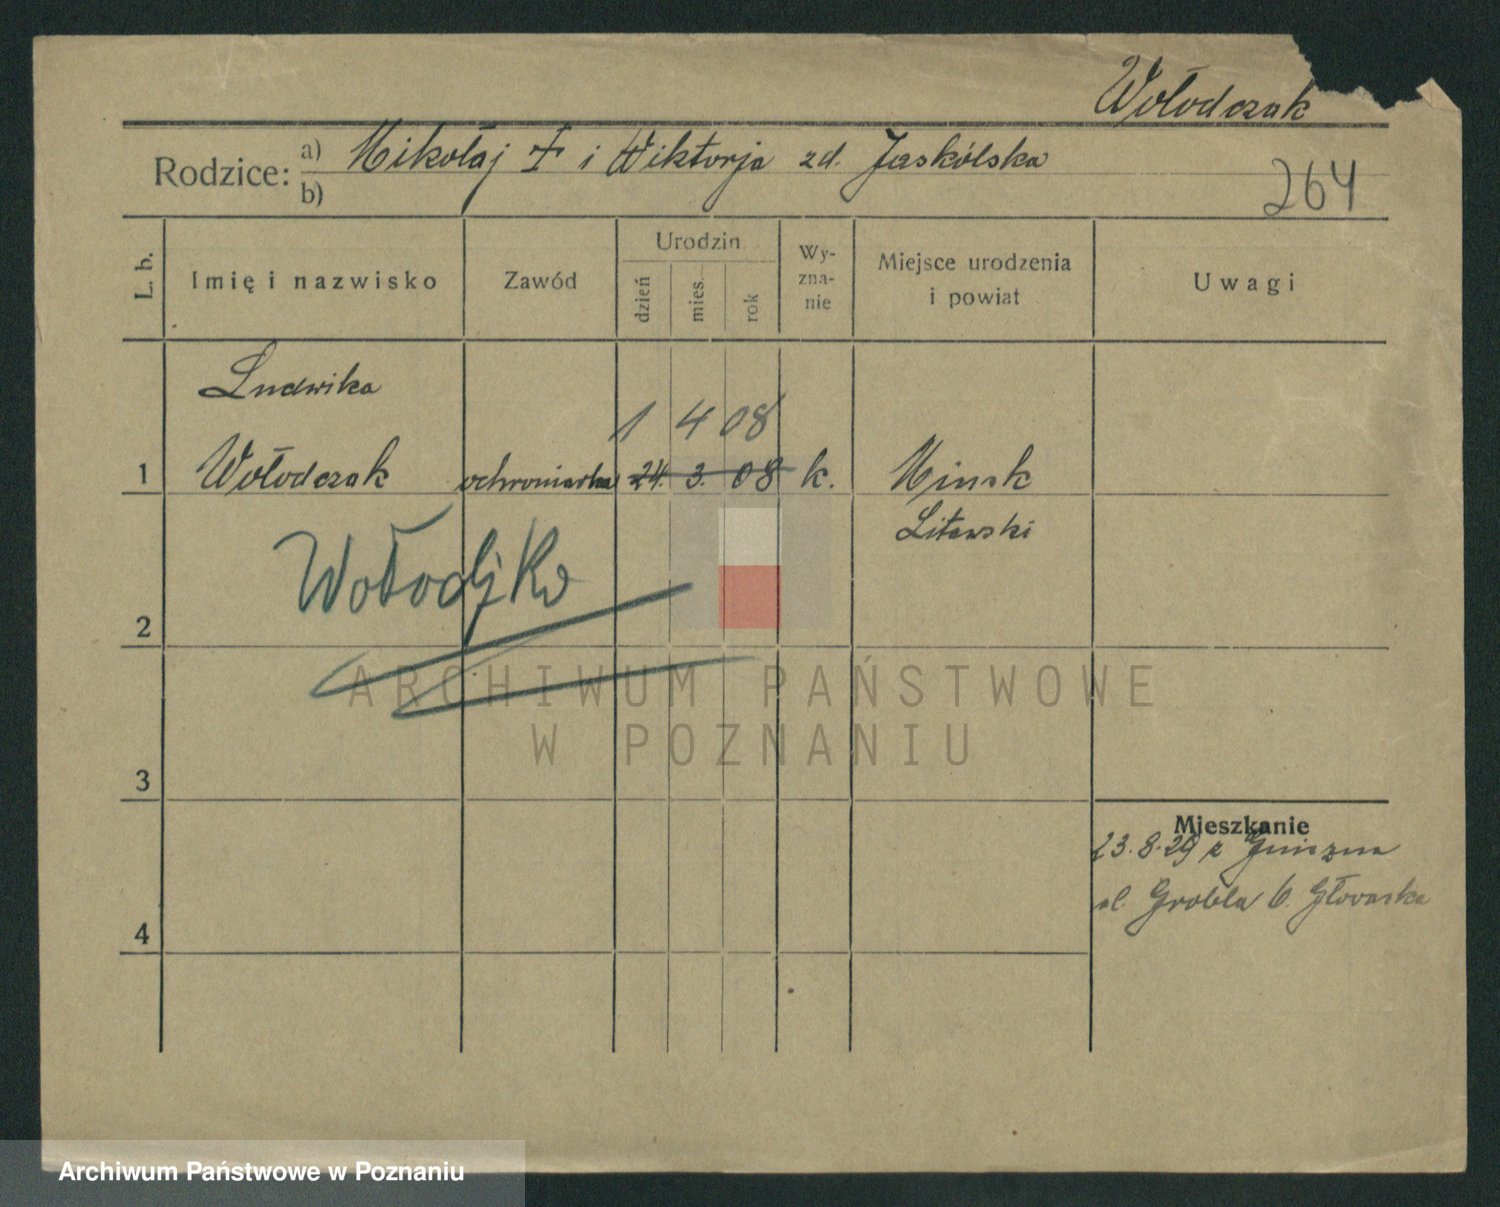 Wołodczak
Rodzice: a) Mikołaj † i Wiktorja zd. Jaskólska
b)
264
L. b.
Imię i nazwisko
Zawód
Urodzin
dzień
mies.
rok
Wy-
zna-
nie
Miejsce urodzenia
i powiat
Uwagi
Ludwika
1 4 08
1 Wołodczak ochroniarka 24. 3. 08 k. Minsk
Litewski
Wołodjko
2
3
4
Mieszkanie
23.8.29 z Gniezna
ul. Grobla 6.
ARCHIWUM PAŃSTWOWE
W POZNANIU
Archiwum Państwowe w Poznaniu